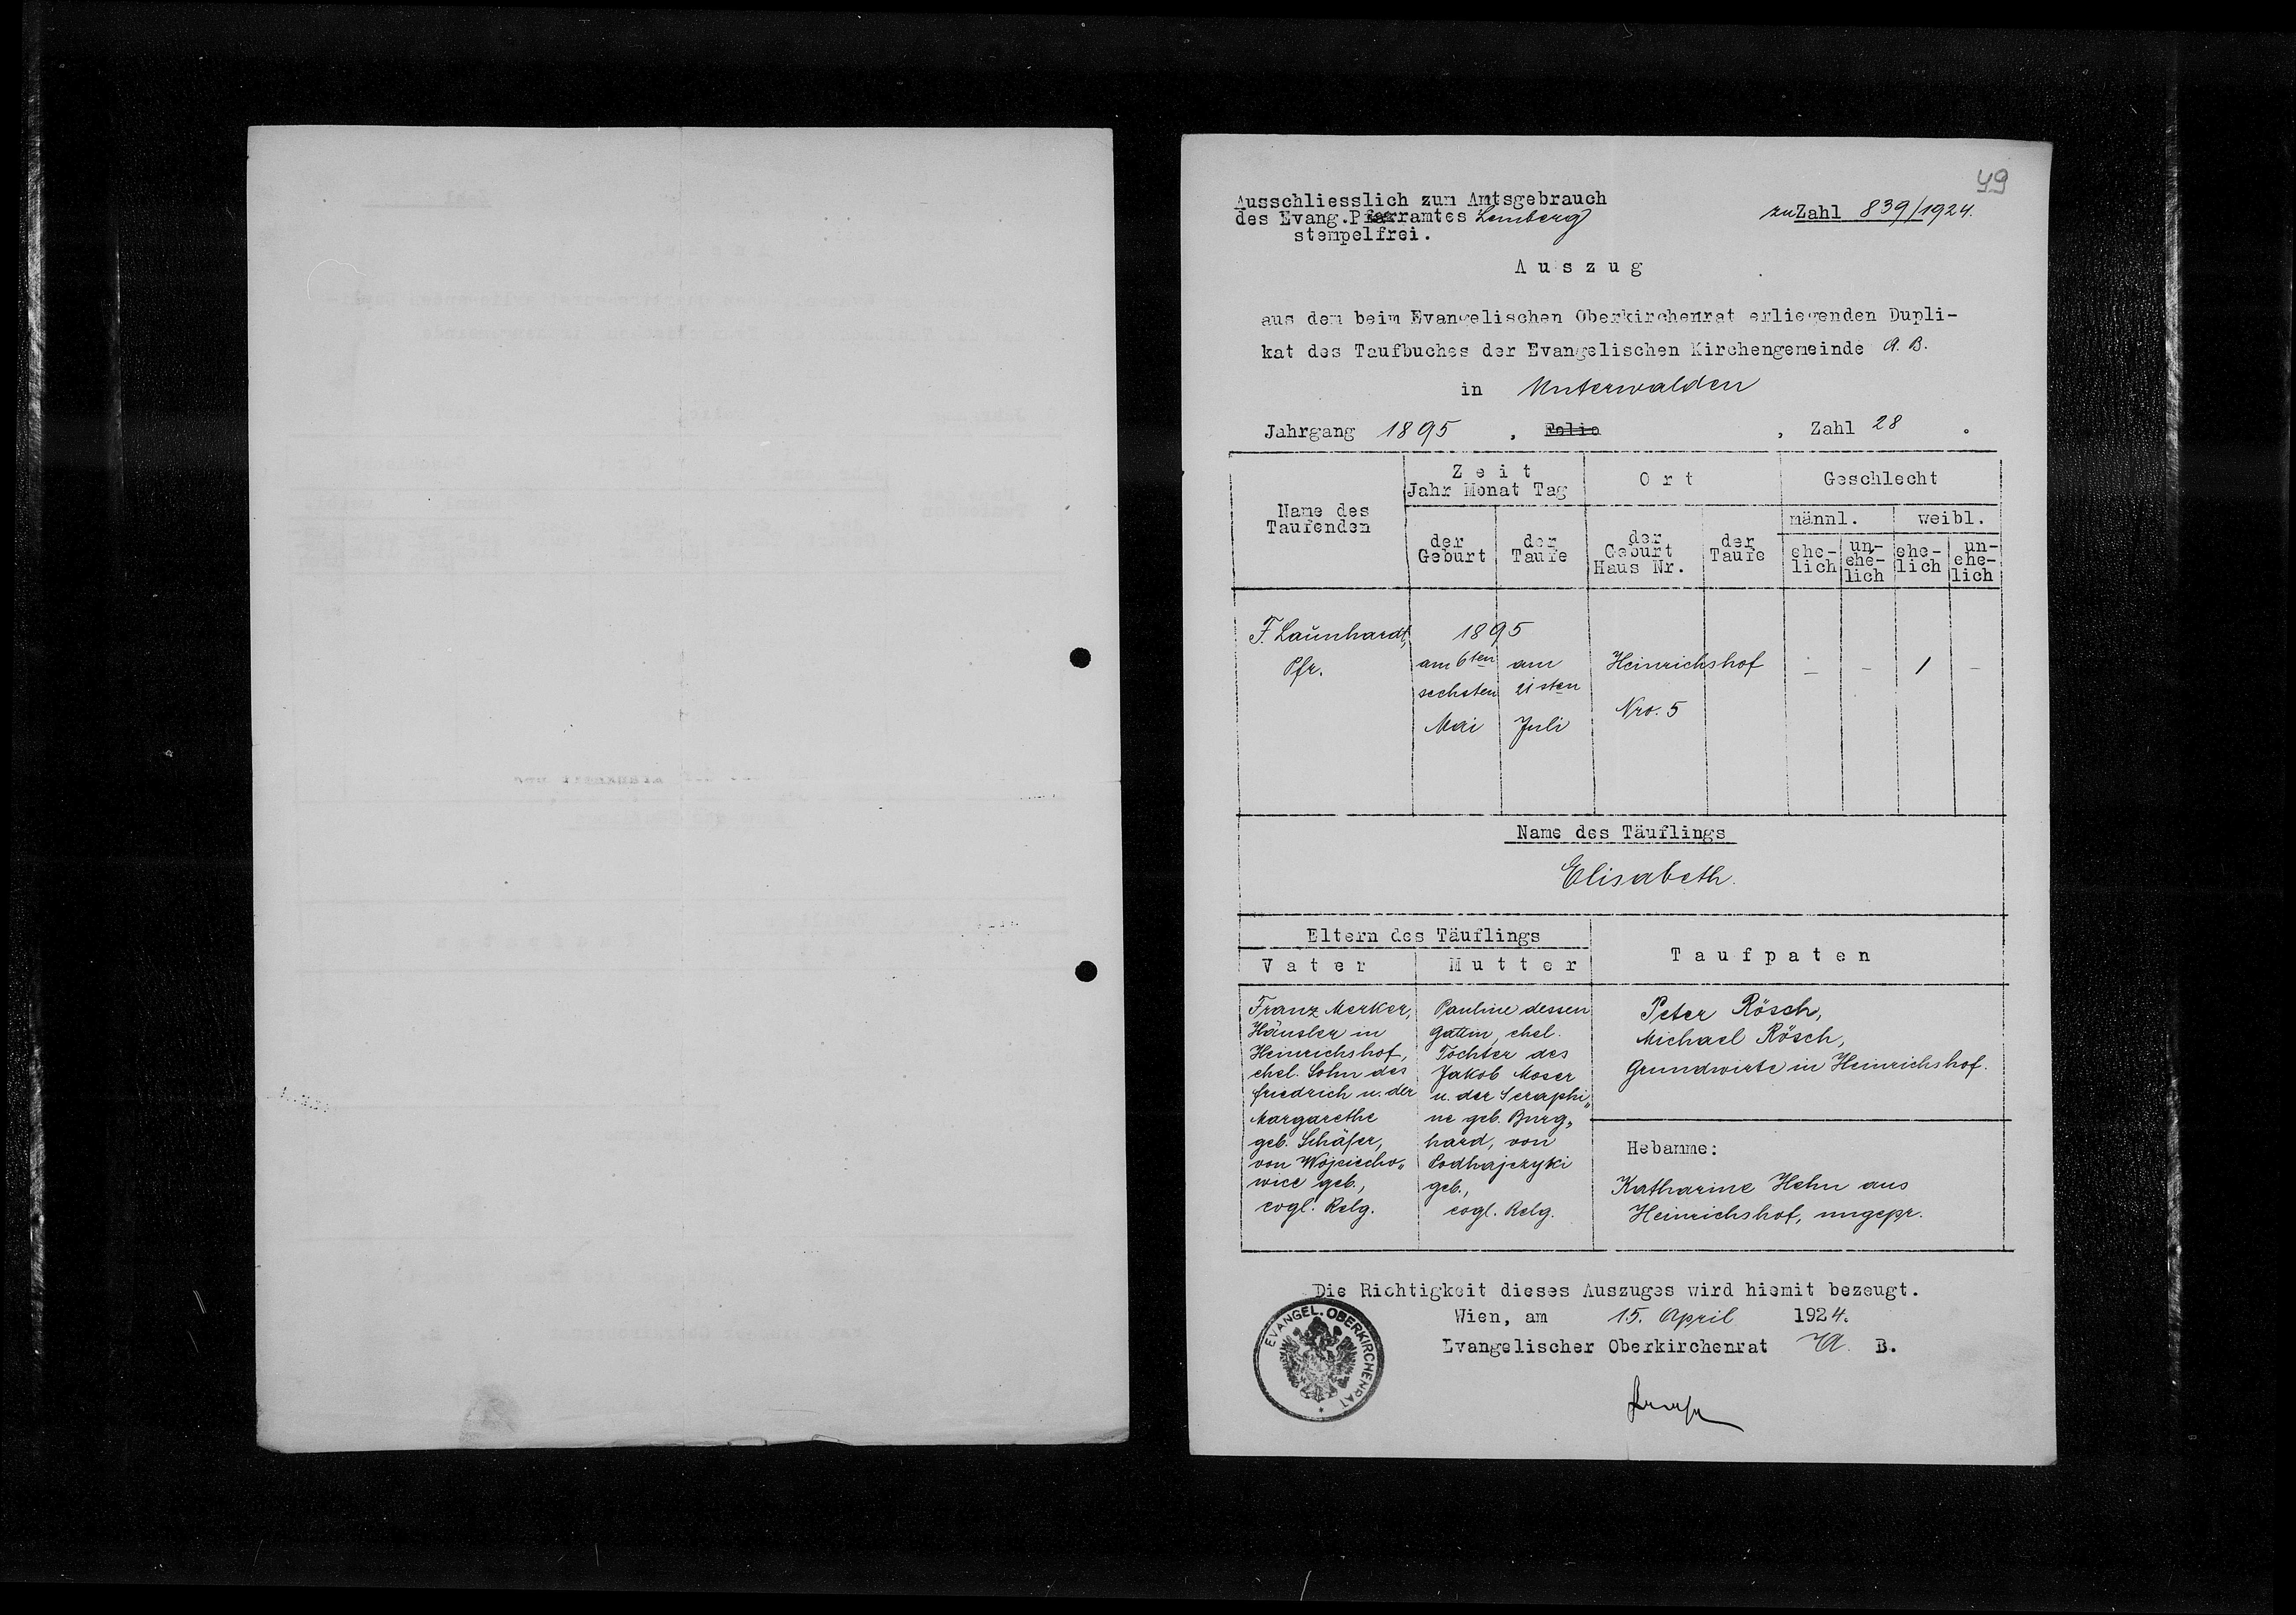 49
Ausschliesslich zum Amtsgebrauch
des Evang.Pfarramtes Lemberg
stempelfrei.
zu Zahl 839/1924.
Auszug
aus dem beim Evangelischen Oberkirchenrat erliegenden Dupli-
kat des Taufbuches der Evangelischen Kirchengemeinde A. B.
in Unterwalden
Jahrgang 1895 , Folio , Zahl 28 .
Name des
Taufenden
Zeit
Jahr Monat Tag
Ort
Geschlecht
männl. weibl.
der
Geburt
der
Taufe
der
Geburt
Haus Nr.
der
Taufe
ehe-
lich
un-
ehe-
lich
ehe-
lich
un-
ehe-
lich
F. Launhardt,
Pfr.
1895
am 6ten
sechsten
Mai
am
21sten
Juli
Heinrichshof
Nro. 5
– – 1 –
Name des Täuflings
Elisabeth.
Eltern des Täuflings
Vater
Mutter
Taufpaten
Franz Merker,
Häusler in
Heinrichshof,
ehel. Sohn des
Friedrich u. der
Margarethe
geb. Schäfer,
von Wojciecho„
wice geb.,
evgl. Relg.
Pauline dessen
Gattin, ehel.
Tochter des
Jakob Moser
u. der Seraphi„
ne geb. Burg„
hard, von
Podhajczyki
geb.,
evgl. Relg.
Peter Rösch,
Michael Rösch,
Grundwirte in Heinrichshof.
Hebamme:
Katharine Hehn aus
Heinrichshof, ungepr.
Die Richtigkeit dieses Auszuges wird hiemit bezeugt.
Wien, am 15. April 1924.
Evangelischer Oberkirchenrat A. B.
EVANGEL. OBERKIRCHENRAT